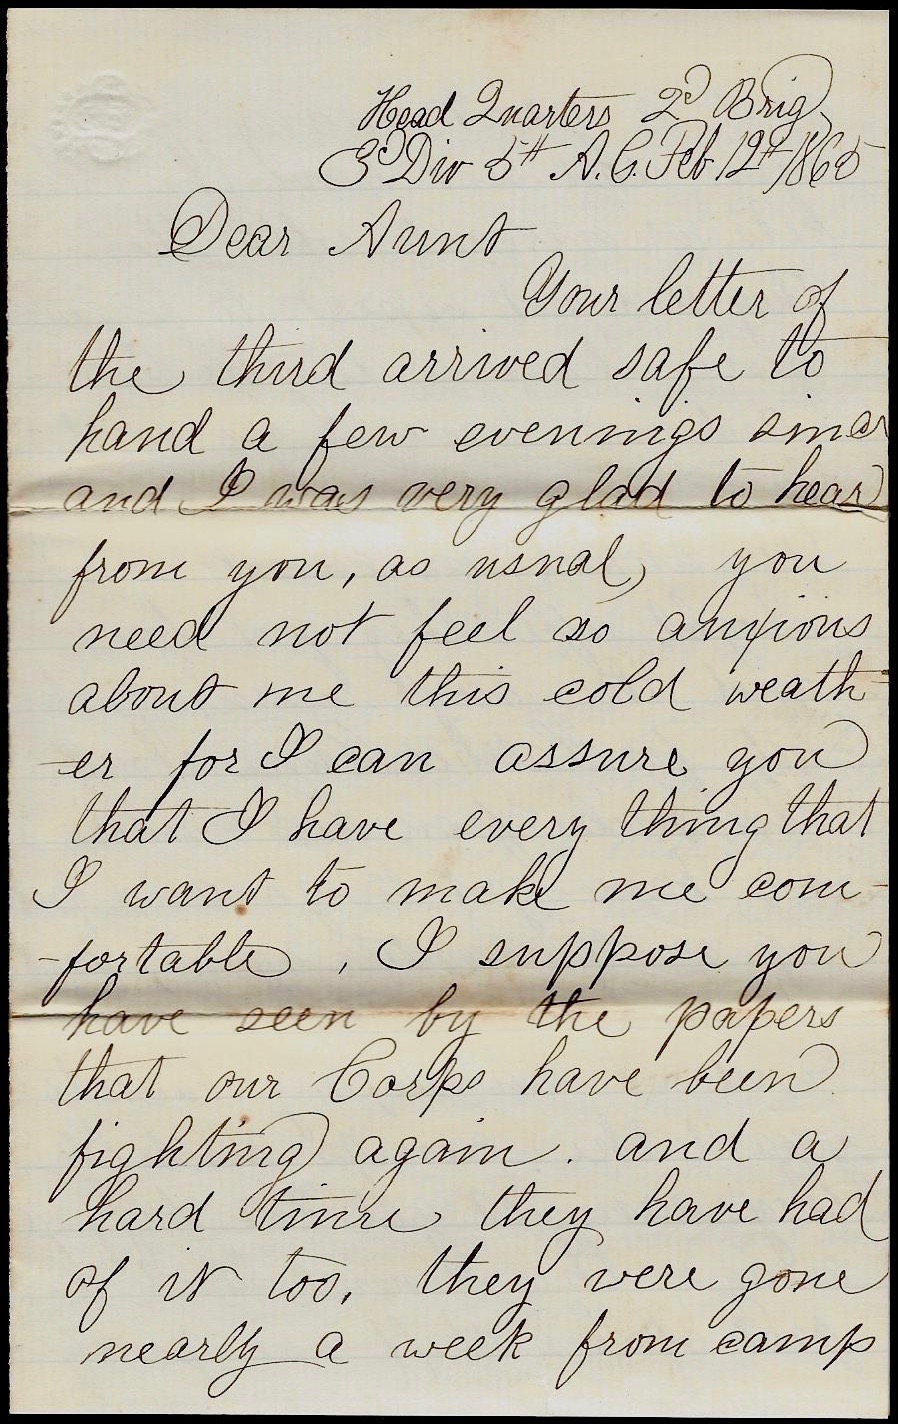 Head Quarters 2d Brig
3d Div 5th A.C. Feb 12th/1865
Dear Aunt
Your letter of
the third arrived safe to
hand a few evenings since
and I was very glad to hear
from you, as usual, you
need not feel so anxious
about me this cold weath-
-er for I can assure you
that I have every thing that
I want to make me com-
-fortable, I suppose you
have seen by the papers
that our Corps have been
fighting again. and a
hard time they have had
of it too, they were gone
nearly a week from camp